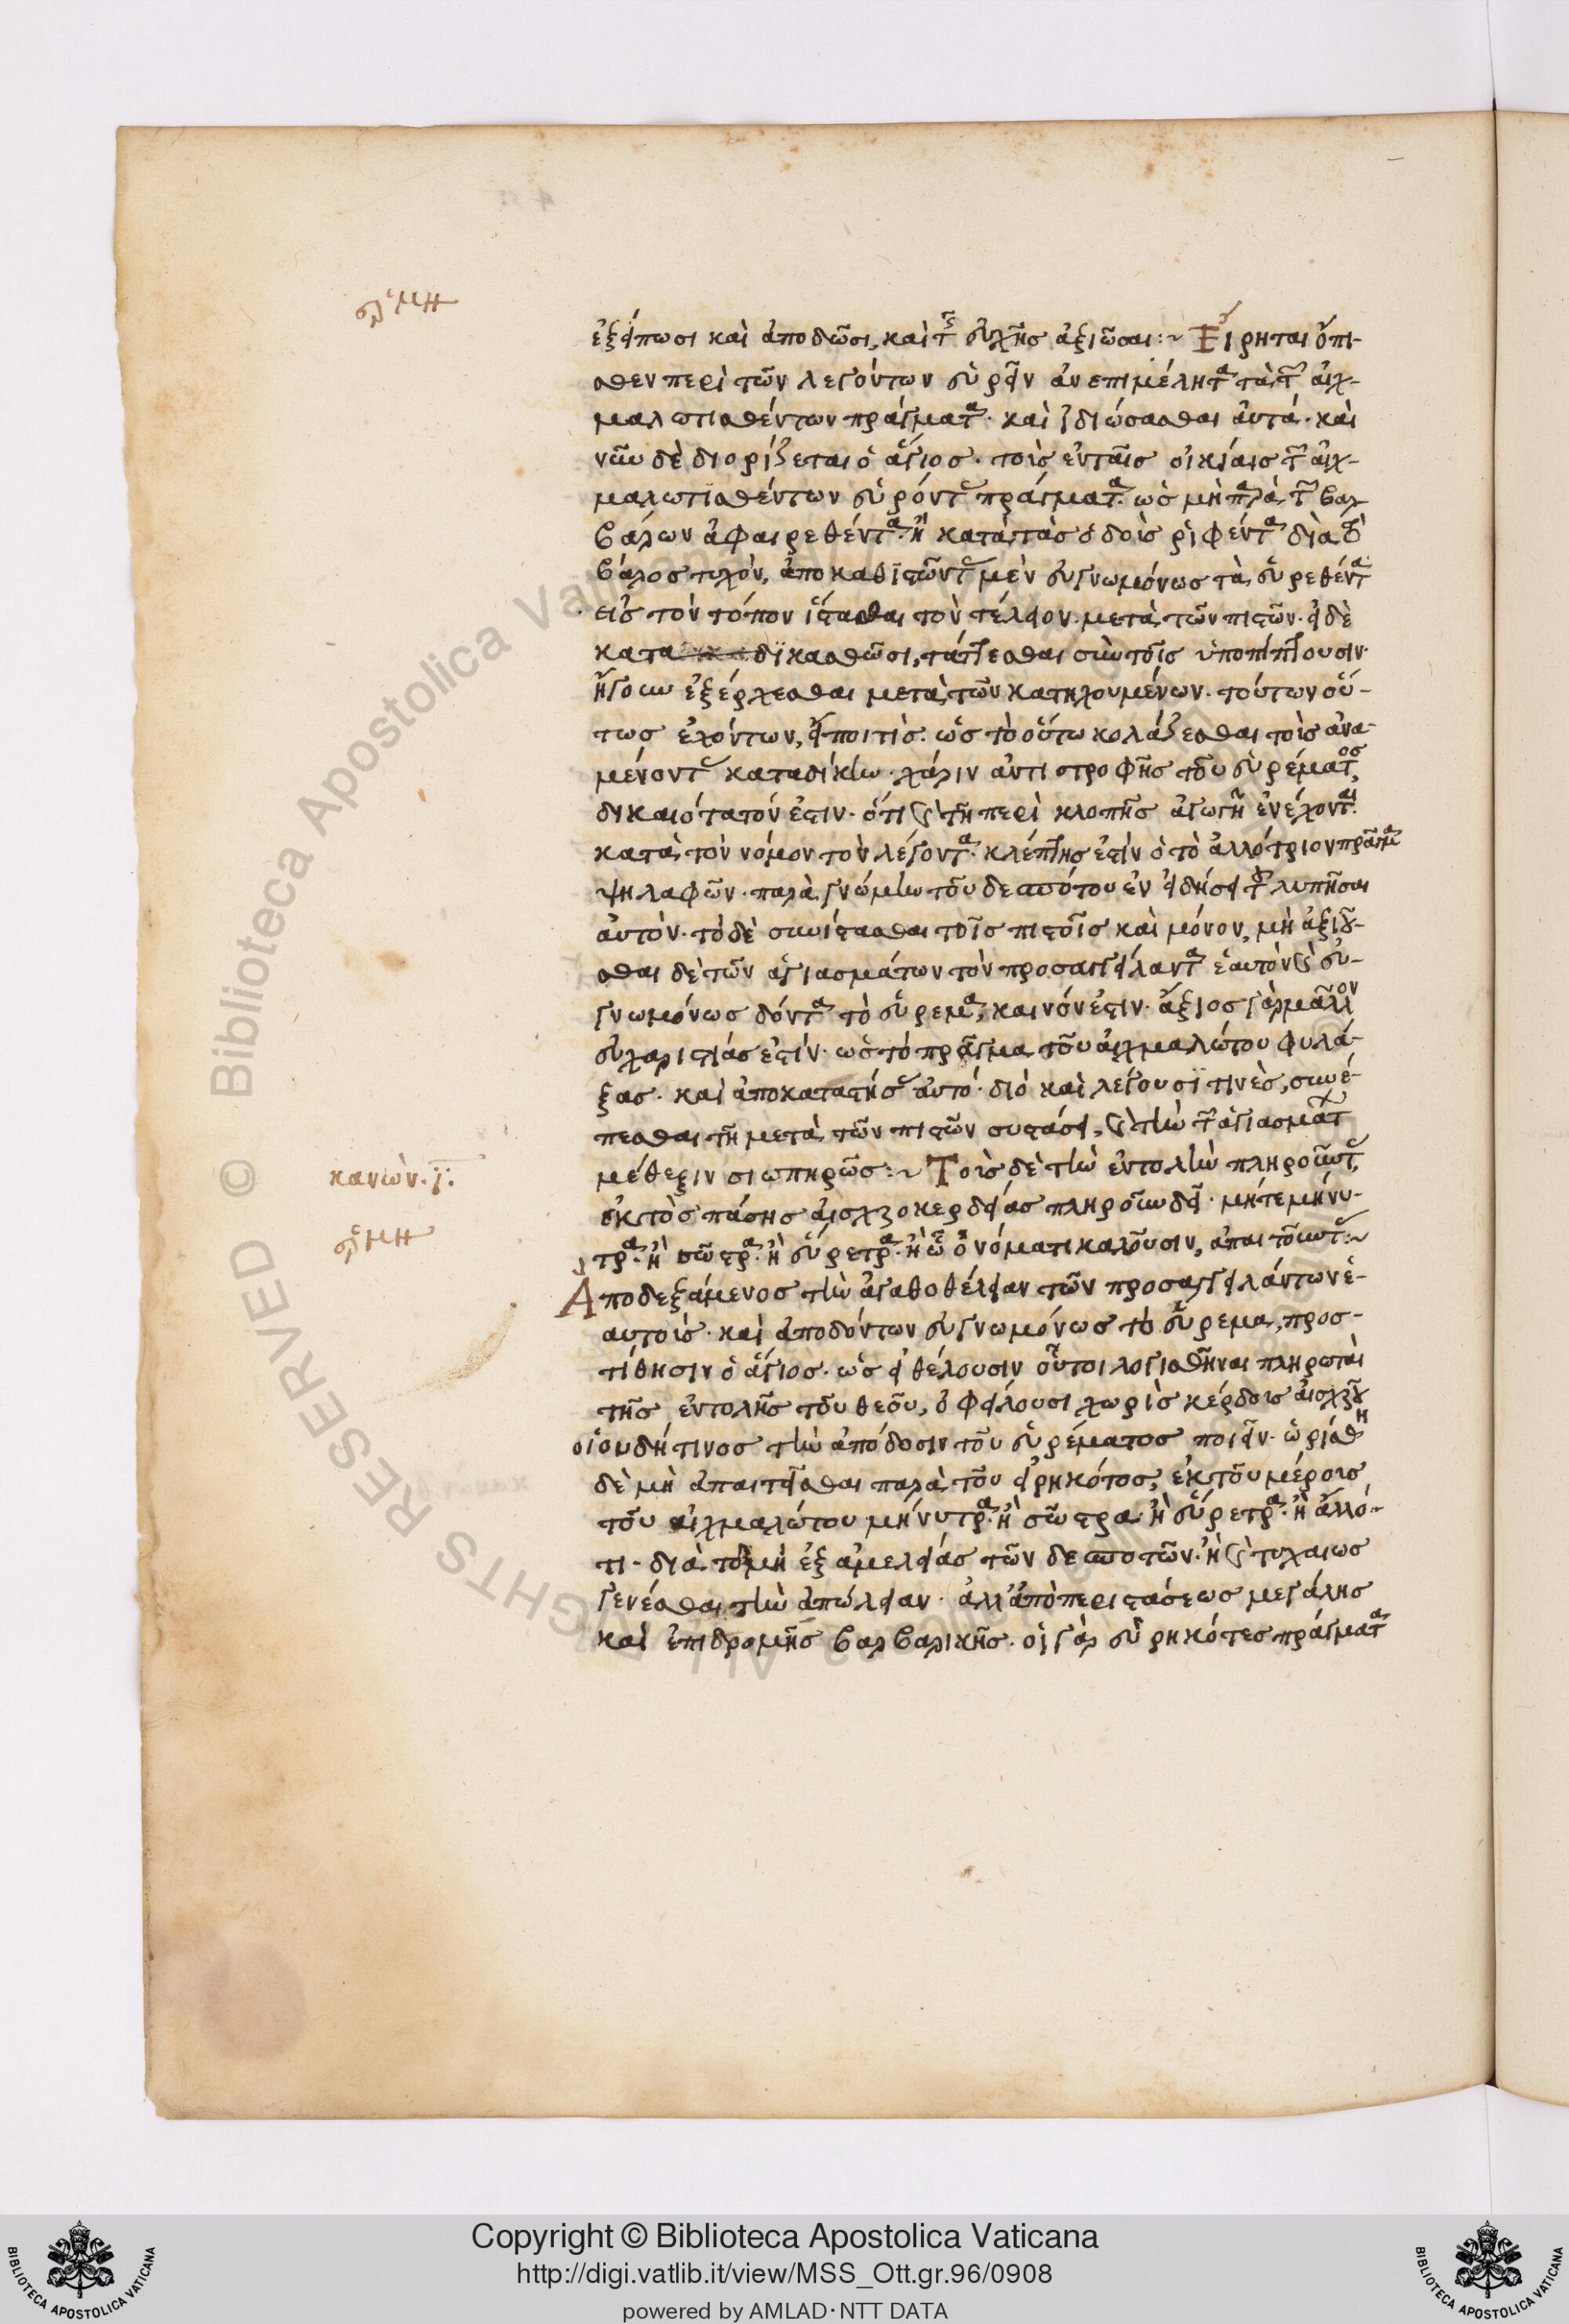 ἐξείπωσι καὶ ἀποδῶσι, καὶ τῆς εὐχῆς ἀξιῶσαι:~ Εἴρηται ὄπι-
σθεν περὶ τῶν λεγόντων εὑρεῖν ἀνεπιμέλητα τὰ τῶν αἰχ-
μαλωτισθέντων πράγματα· καὶ ἰδιώσασθαι αὐτά· καὶ
νῦν δὲ διορίζεται ὁ ἅγιος· τοὺς ἐν ταῖς οἰκίαις τῶν αἰχ-
μαλωτισθέντων εὑρόντας πράγματα· ὡς μὴ παρὰ τῶν βαρ
βάρων ἀφαιρεθέντα· ἢ κατὰ τὰς ὁδοὺς ῥιφέντα διὰ τὸ
βάρος τυχὸν, ἀποκαθιστῶντας μὲν εὐγνωμόνως τὰ εὑρεθέντα
εἰς τὸν τόπον ἵστασθαι τὸν τέλειον μετὰ τῶν πιστῶν· εἰ δὲ
καταδικασθῶσι, τάττεσθαι σὺν τοῖς ὑποπίπτουσιν·
ἤγουν ἐξέρχεσθαι μετὰ τῶν κατηχουμένων· τούτων οὕ-
τως ἐχόντων, εἴποι τίς· ὡς τὸ οὕτω κολάζεσθαι τοὺς ἀνα-
μένοντας καταδίκην· χάριν ἀντιστροφῆς τοῦ εὑρέματος,
δικαιότατόν ἐστιν· ὅτι καὶ τῇ περὶ κλοπῆς ἀγωγῇ ἐνέχονται·
κατὰ τὸν νόμον τὸν λέγοντα· κλέπτης ἐστὶν ὁ τὸ ἀλλότριον πρᾶγμα
ψηλαφῶν· παρὰ γνώμην τοῦ δεσπότου ἐν εἰδήσει τοῦ λυπῆσαι
αὐτόν· τὸ δὲ συνίστασθαι τοῖς πιστοῖς καὶ μόνον, μὴ ἀξιοῦ-
σθαι δὲ τῶν ἁγιασμάτων τὸν προσαγγείλαντα ἑαυτὸν καὶ εὐ-
γνωμόνως δόντα τὸ εὕρεμα, καινόν ἐστιν· ἄξιος γὰρ μᾶλλον
εὐχαριστίας ἐστίν· ὡς τὸ πρᾶγμα τοῦ αἰχμαλώτου φυλά-
ξας· καὶ ἀποκαταστήσας αὐτό· διὸ καὶ λέγουσί τινες, συνέ-
πεσθαι τῇ μετὰ τῶν πιστῶν συστάσει, καὶ τὴν τῶν ἁγιασμάτων
μέθεξιν σιωπηρῶς:~ Τοὺς δὲ τὴν ἐντολὴν πληροῦντας,
ἐκτὸς πάσης αἰσχροκερδείας πληροῦν δεῖ· μήτε μήνυ-
τρα· ἢ σῶστρα· ἢ εὕρετρα· ἢ ᾧ ὀνόματι καλοῦσιν, ἀπαιτοῦντας:~
Ἀποδεξάμενος τὴν ἀγαθοθέλειαν τῶν προσαγγειλάντων ἑ-
αυτοὺς· καὶ ἀποδόντων εὐγνωμόνως τὸ εὕρεμα, προσ-
τίθησιν ὁ ἅγιος· ὡς εἰ θέλουσιν οὗτοι λογισθῆναι πληρωταὶ
τῆς ἐντολῆς τοῦ θεοῦ, ὀφείλουσι χωρὶς κέρδους αἰσχροῦ
οἱουδήτινος τὴν ἀπόδοσιν τοῦ εὑρέματος ποιεῖν· ὡρίσθη
δὲ μὴ ἀπαιτεῖσθαι παρὰ τοῦ εὑρηκότος, ἐκ τοῦ μέρους
τοῦ αἰχμαλώτου μήνυτρα· ἢ σῶστρα· ἢ εὕρετρα· ἢ ἄλλό-
τι· διὰ τὸ μὴ ἐξ ἀμελείας τῶν δεσποτῶν· ἢ καὶ τυχαίως
γενέσθαι τὴν ἀπώλειαν· ἀλλ' ἀπὸ περιστάσεως μεγάλης
καὶ ἐπιδρομῆς βαρβαρικῆς· οἱ γὰρ εὑρηκότες πράγματα
κανὼν· ι:
Copyright © Biblioteca Apostolica Vaticana
http://digi.vatlib.it/view/MSS_Ott.gr.96/0908
powered by AMLAD·NTT DATA